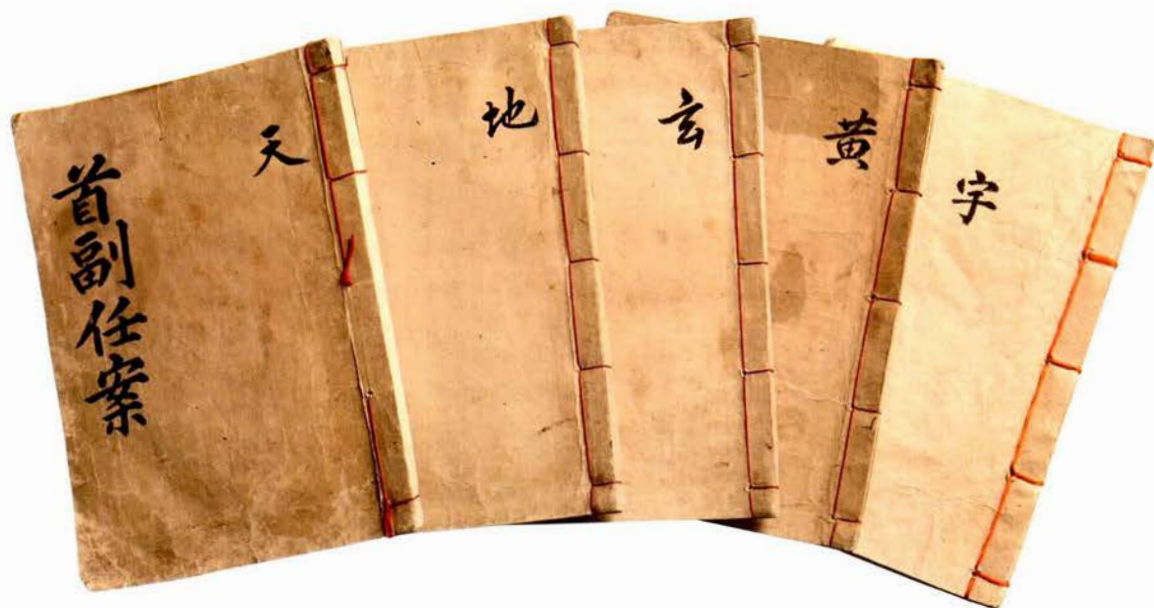 首副任案
天
地
玄
黃
宇